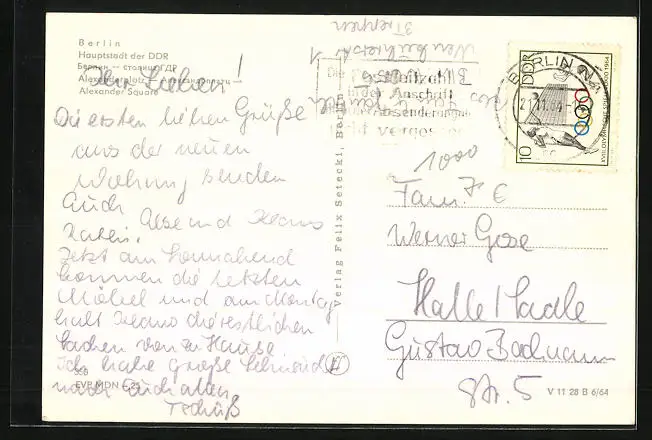 Berlin
Hauptstadt der DDR
Берлин — столица ГДР
Alexanderplatz — Александерплатц
Alexander Square
Ihr Lieben!
Die ersten lieben Grüße
aus der neuen
Wohnung senden
Euch Else und Klaus
Jetzt am Sonnabend
kommen die letzten
Möbel und am Montag
holt Klaus die restlichen
Sachen von zu Hause.
Ich habe große Sehnsucht
nach euch allen
Tschüß
508
EVP MDN -,25
Verlag Felix Setecki, Berlin
3 Treppen
Postleitzahl
in der Anschrift
nicht vergessen
BERLIN
21.11.64
DDR
10
XVIII. OLYMPISCHE SPIELE TOKYO 1964
1000
Fam.
Werner Gose
Halle / Saale
Gustav Bachmann
Str. 5
V 11 28 B 6/64